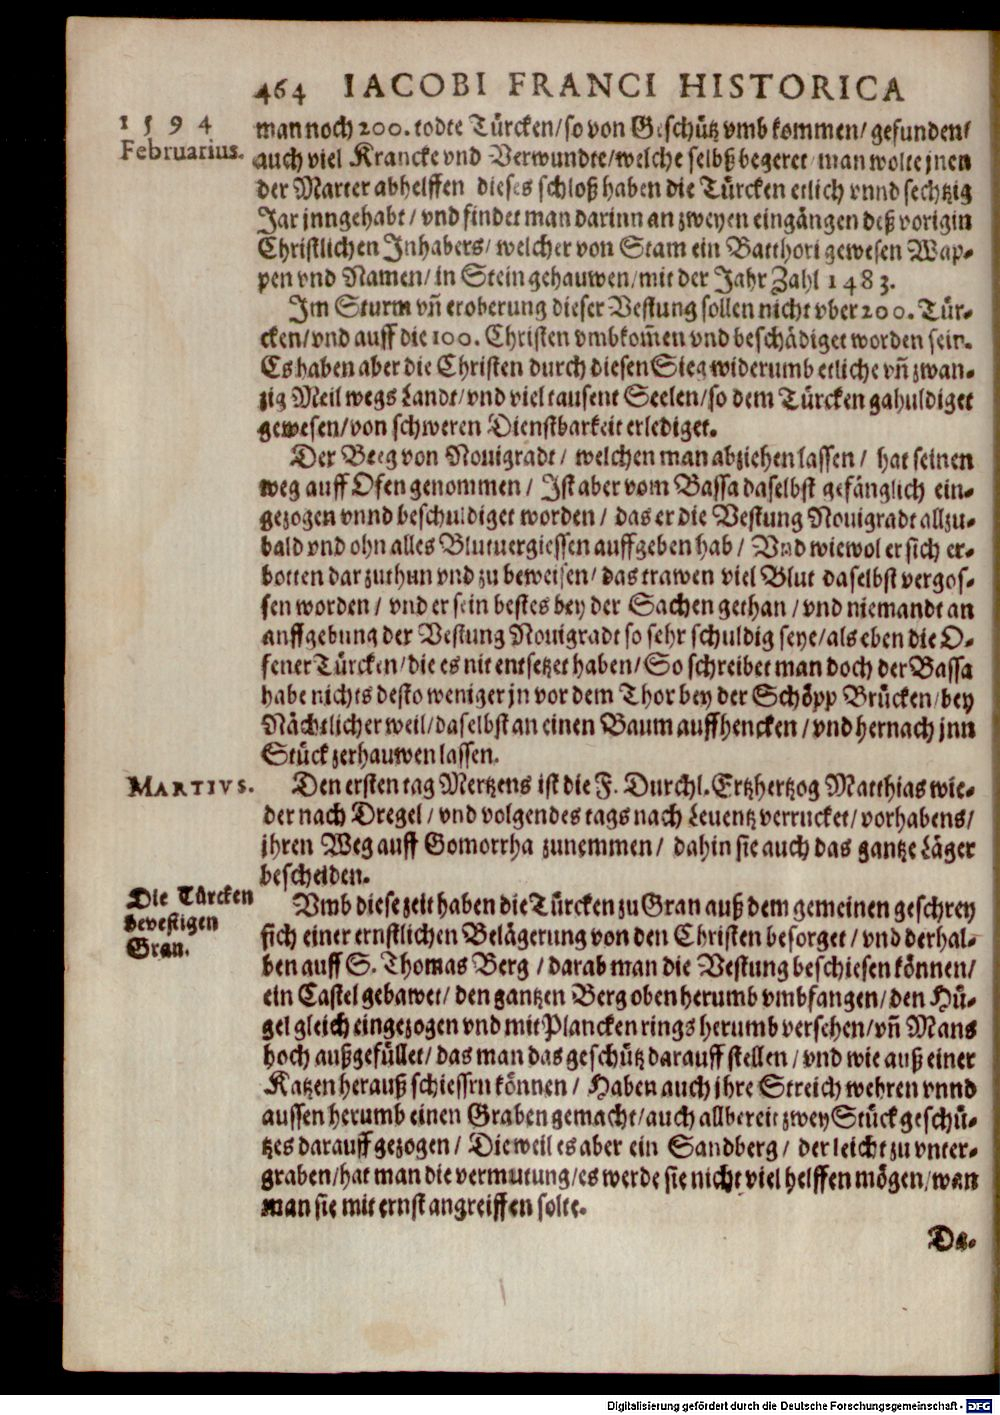 464 IACOBI FRANCI HISTORICA
1594
Februarius.
man noch 200. todte Türcken/ so von Geschütz vmb kommen/ gefunden/
auch viel Krancke vnd Verwundte/ welche selbß begeret/ man wolte jnen
der Marter abhelffen dieses schloß haben die Türcken etlich vnnd sechtzig
Jar jnngehabt/ vnd findet man darinn an zweyen eingängen deß vorigin
Christlichen Inhabers/ welcher von Stam ein Batthori gewesen Wap-
pen vnd Namen/ in Stein gehauwen/ mit der Jahr Zahl 1483.
Im Sturm vn̄ eroberung dieser Vestung sollen nicht vber 200. Tür-
cken/ vnd auff die 100. Christen vmbkom̄en vnd beschädiget worden sein.
Es haben aber die Christen durch diesen Sieg widerumb etliche vn̄ zwan-
zig Meil wegs Landt/ vnd viel tausent Seelen/ so dem Türcken gahuldiget
gewesen/ von schweren Dienstbarkeit erlediget.
Der Beeg von Nouigradt/ welchen man abziehen lassen/ hat seinen
weg auff Ofen genommen/ Ist aber vom Bassa daselbst gefänglich ein-
gezogen vnnd beschuldiget worden/ das er die Vestung Nouigradt allzu-
bald vnd ohn alles Blutuergiessen auffgeben hab/ Vnd wiewol er sich er-
botten dar zuthun vnd zu beweisen/ das trawen viel Blut daselbst vergos-
sen worden/ vnd er sein bestes bey der Sachen gethan/ vnd niemandt an
auffgebung der Vestung Nouigradt so sehr schuldig seye/ als eben die O-
fener Türcken/ die es nit entsetzet haben/ So schreibet man doch der Bassa
habe nichts desto weniger jn vor dem Thor bey der Schöpp Brücken/ bey
Nächtlicher weil/ daselbst an einen Baum auffhencken/ vnd hernach jnn
Stück zerhauwen lassen.
MARTIVS.
Den ersten tag Mertzens ist die F. Durchl. Ertzhertzog Matthias wie-
der nach Dregel/ vnd volgendes tags nach Leuentz verrucket/ vorhabens/
jhren Weg auff Gomorrha zunemmen/ dahin sie auch das gantze Läger
bescheiden.
Die Türcken
bevestigen
Gran.
Vmb diese zeit haben die Türcken zu Gran auß dem gemeinen geschrey
sich einer ernstlichen Belägerung von den Christen besorget/ vnd derhal-
ben auff S. Thomas Berg/ darab man die Vestung beschiesen können/
ein Castel gebawet/ den gantzen Berg oben herumb vmbfangen/ den Hü-
gel gleich eingezogen vnd mit Plancken rings herumb versehen/ vn̄ Mans
hoch außgefüllet/ das man das geschütz darauff stellen/ vnd wie auß einer
Katzen herauß schiessen können/ Haben auch jhre Streich wehren vnnd
aussen herumb einen Graben gemacht/ auch allbereit zwey Stück geschü-
tzes darauff gezogen/ Dieweil es aber ein Sandberg/ der leicht zu vnter-
graben/ hat man die vermutung/ es werde sie nicht viel helffen mögen/ wan
man sie mit ernst angreiffen solte.
Da-
Digitalisierung gefördert durch die Deutsche Forschungsgemeinschaft - DFG